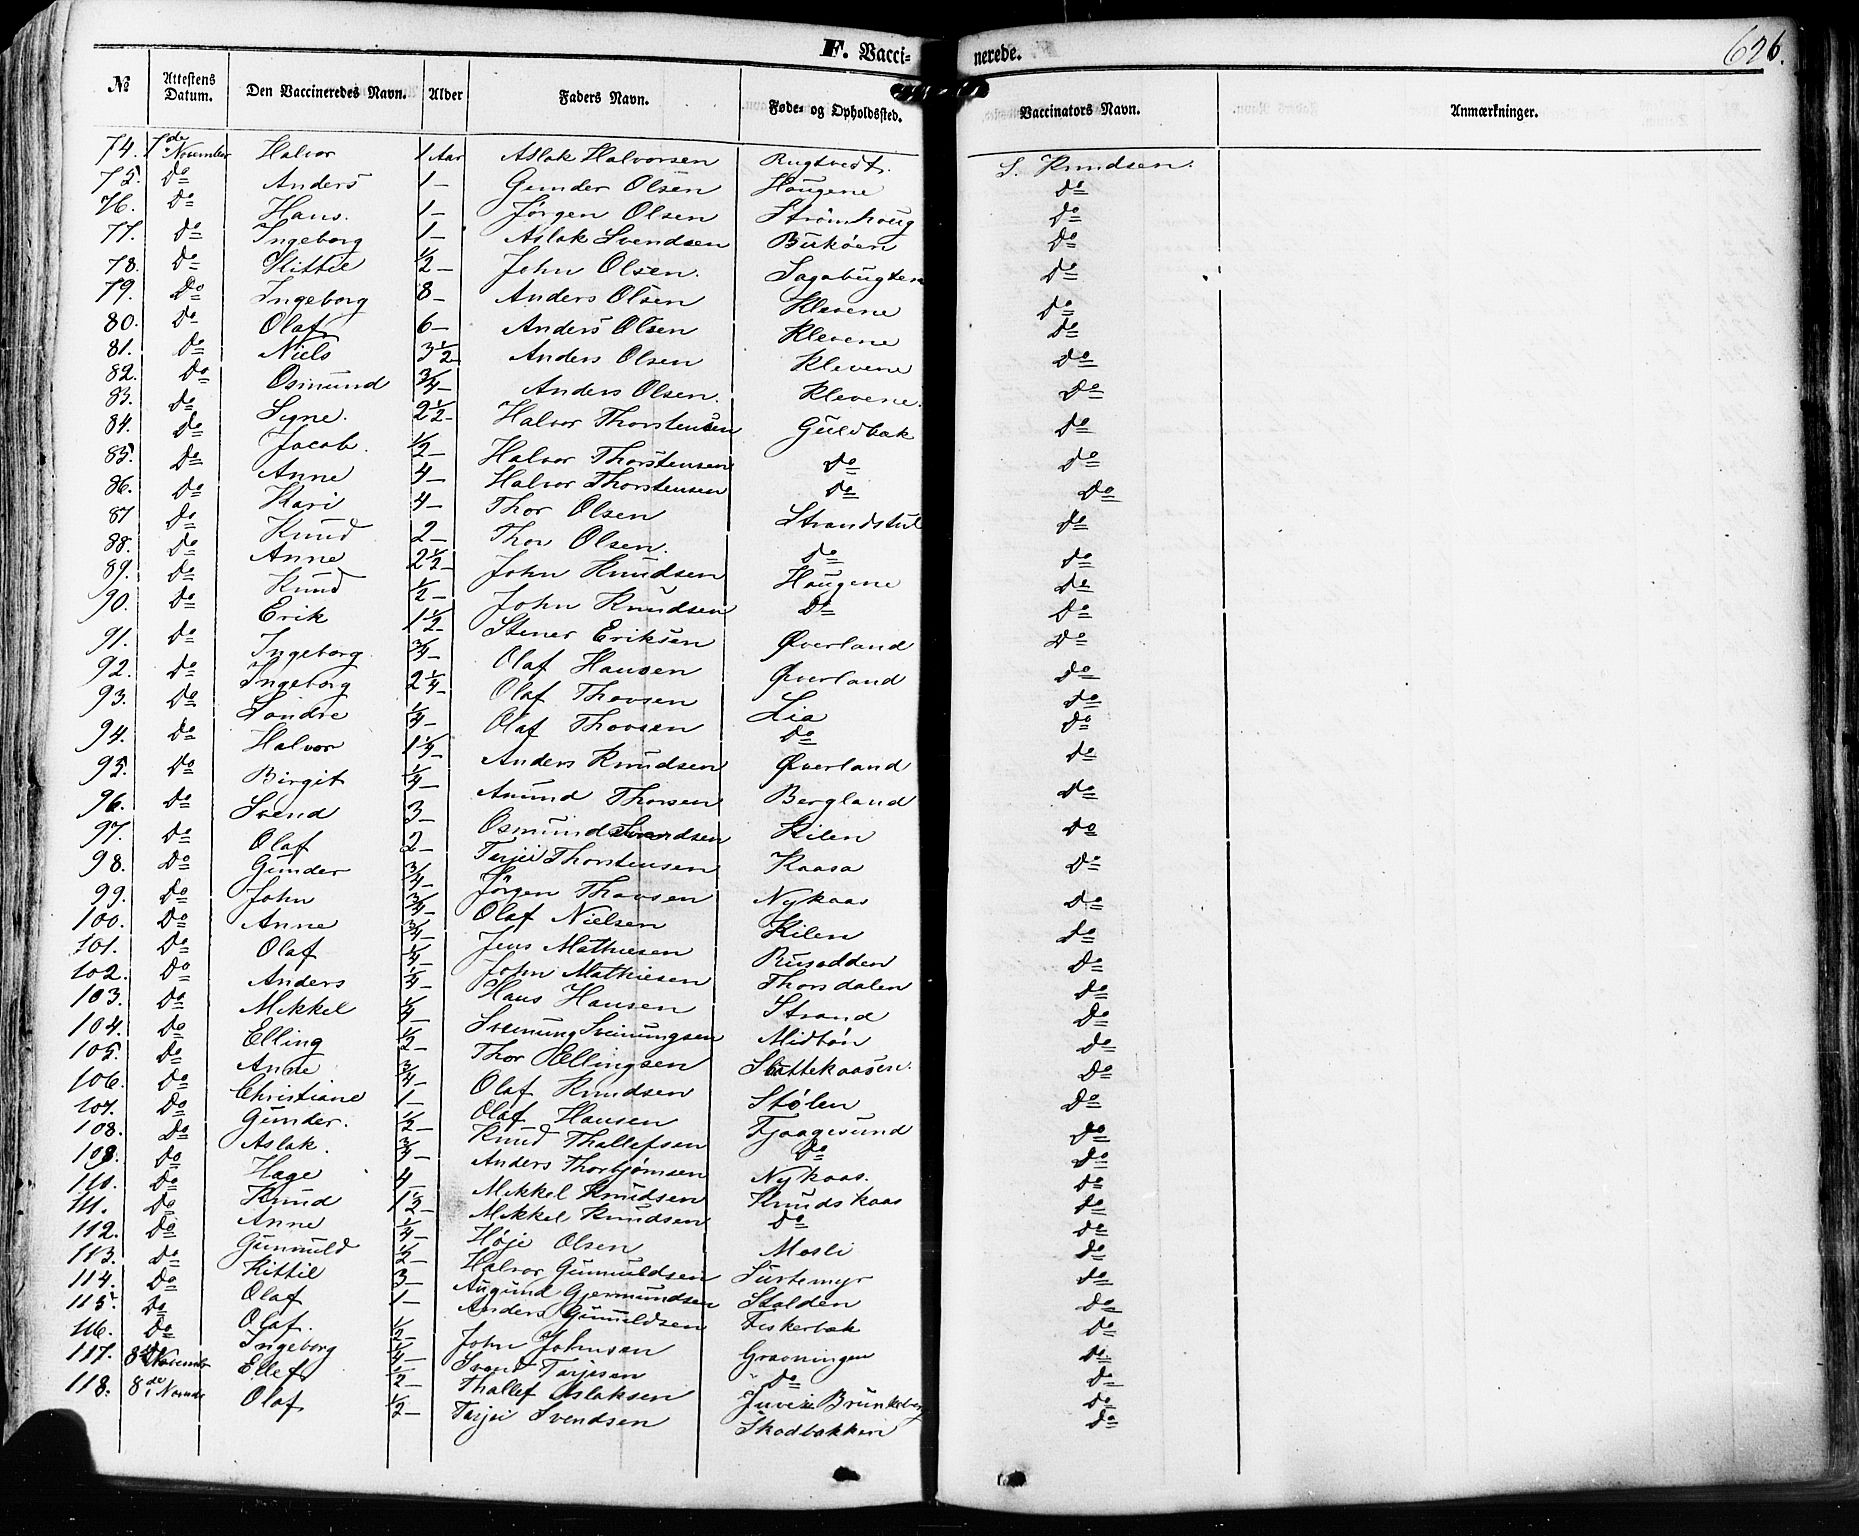 F. Vacci-
nerede.
626.
№ Attestens Datum. Den Vaccineredes Navn. Alder Faders Navn. Føde- og Opholdssted. Vaccinators Navn. Anmærkninger.
74. 7de November Halvor 1 Aar Aslak Halvorsen Rugtvedt. S. Knudsen.
75. Do Anders 1 - Gunder Olsen Haugene Do
76. Do Hans. 1 - Jörgen Olsen Strömhoug Do
77. Do Ingeborg 1 - Aslak Svendsen Birköen Do
78. Do Kittil 1/2 - John Olsen. Sagabugten Do
79. Do Ingeborg 8 - Anders Olsen Klevene Do
80. Do Olaf 6 - Anders Olsen Klevene Do
81. Do Niels 3 1/2 - Anders Olsen Klevene Do
82. Do Osmund 3/4 - Anders Olsen. Klevene. Do
83. Do Signe. 2 1/2 - Halvor Thorstensen Guldbæk Do
84. Do Jacob. 1/2 - Halvor Thorstensen Do Do
85. Do Anne 4 - Halvor Thorstensen Do Do
86. Do Kari 4 - Thor Olsen Strandstul Do
87 Do Knud 2 - Thor Olsen. Do Do
88. Do Anne 2 1/2 - John Knudsen Haugene Do
89. Do Knud 1/2 - John Knudsen Do Do
90. Do Erik 1 1/2 - Stener Eriksen Øverland Do
91. Do Ingeborg 3/4 - Olaf Hansen Øverland Do
92. Do Ingeborg 2 1/4 - Olaf Thorsen Lia Do
93. Do Sondre 1/4 - Olaf Thorsen Do Do
94. Do Halvor 1 1/4 - Anders Knudsen Øverland Do
95. Do Birgit 1/4 - Amund Thorsen Bergland Do
96. Do Svend 3 - Osmund Svendsen Kilen Do
97. Do Olaf 2 - Terjei Thorstensen Kaasa Do
98. Do Gunder 3/4 - Jörgen Thorsen Nykaas Do
99. Do John 3/4 - Olaf Nielsen Kilen Do
100. Do Anne 3/4 - Jens Mathiesen Rusodden Do
101. Do Olaf 1/4 - John Mathiesen Thorsdalen Do
102. Do Anders 1/4 - Hans Hansen Strand Do
103. Do Mikkel 1/4 - Svenung Sveinungsen Midbön Do
104. Do Elling 1/2 - Thor Ellingsen Slattekaasen. Do
105. Do Anne 3/4 - Olaf Knudsen Stölen Do
106. Do Christiane 1 - Olaf Hansen Fjaagesund Do
107. Do Gunder. 1/2 - Knud Thallefsen Do Do
108. Do Aslak. 3/4 - Anders Thorbjörnsen Nykaas. Do
109. Do Hage 4 - Mikkel Knudsen Knudskaas Do
110. Do Knud 1 1/2 - Mikkel Knudsen Do Do
111. Do Anne 1/4 - Höje Olsen Mosli Do
112. Do Gunnuld 1/2 - Halvor Gunnuldsen Surtemyr Do
113. Do Kittil 3 - Augund Gjermundsen Stalden Do
114. Do Olaf 1 - Anders Gunnuldsen Fiskerbæk Do
115. Do Olaf. 1/2 - John Johnsen Graoningen Do
116. Do Ingeborg 1/4 - Svend Tarjesen Do Do
117. 8de November Ellef 1/2 - Thallef Aslaksen Juve i Brunkeberg Do
118. 8de Novmbr Olaf 1/2 - Tarjei Svendsen Skodbakken Do